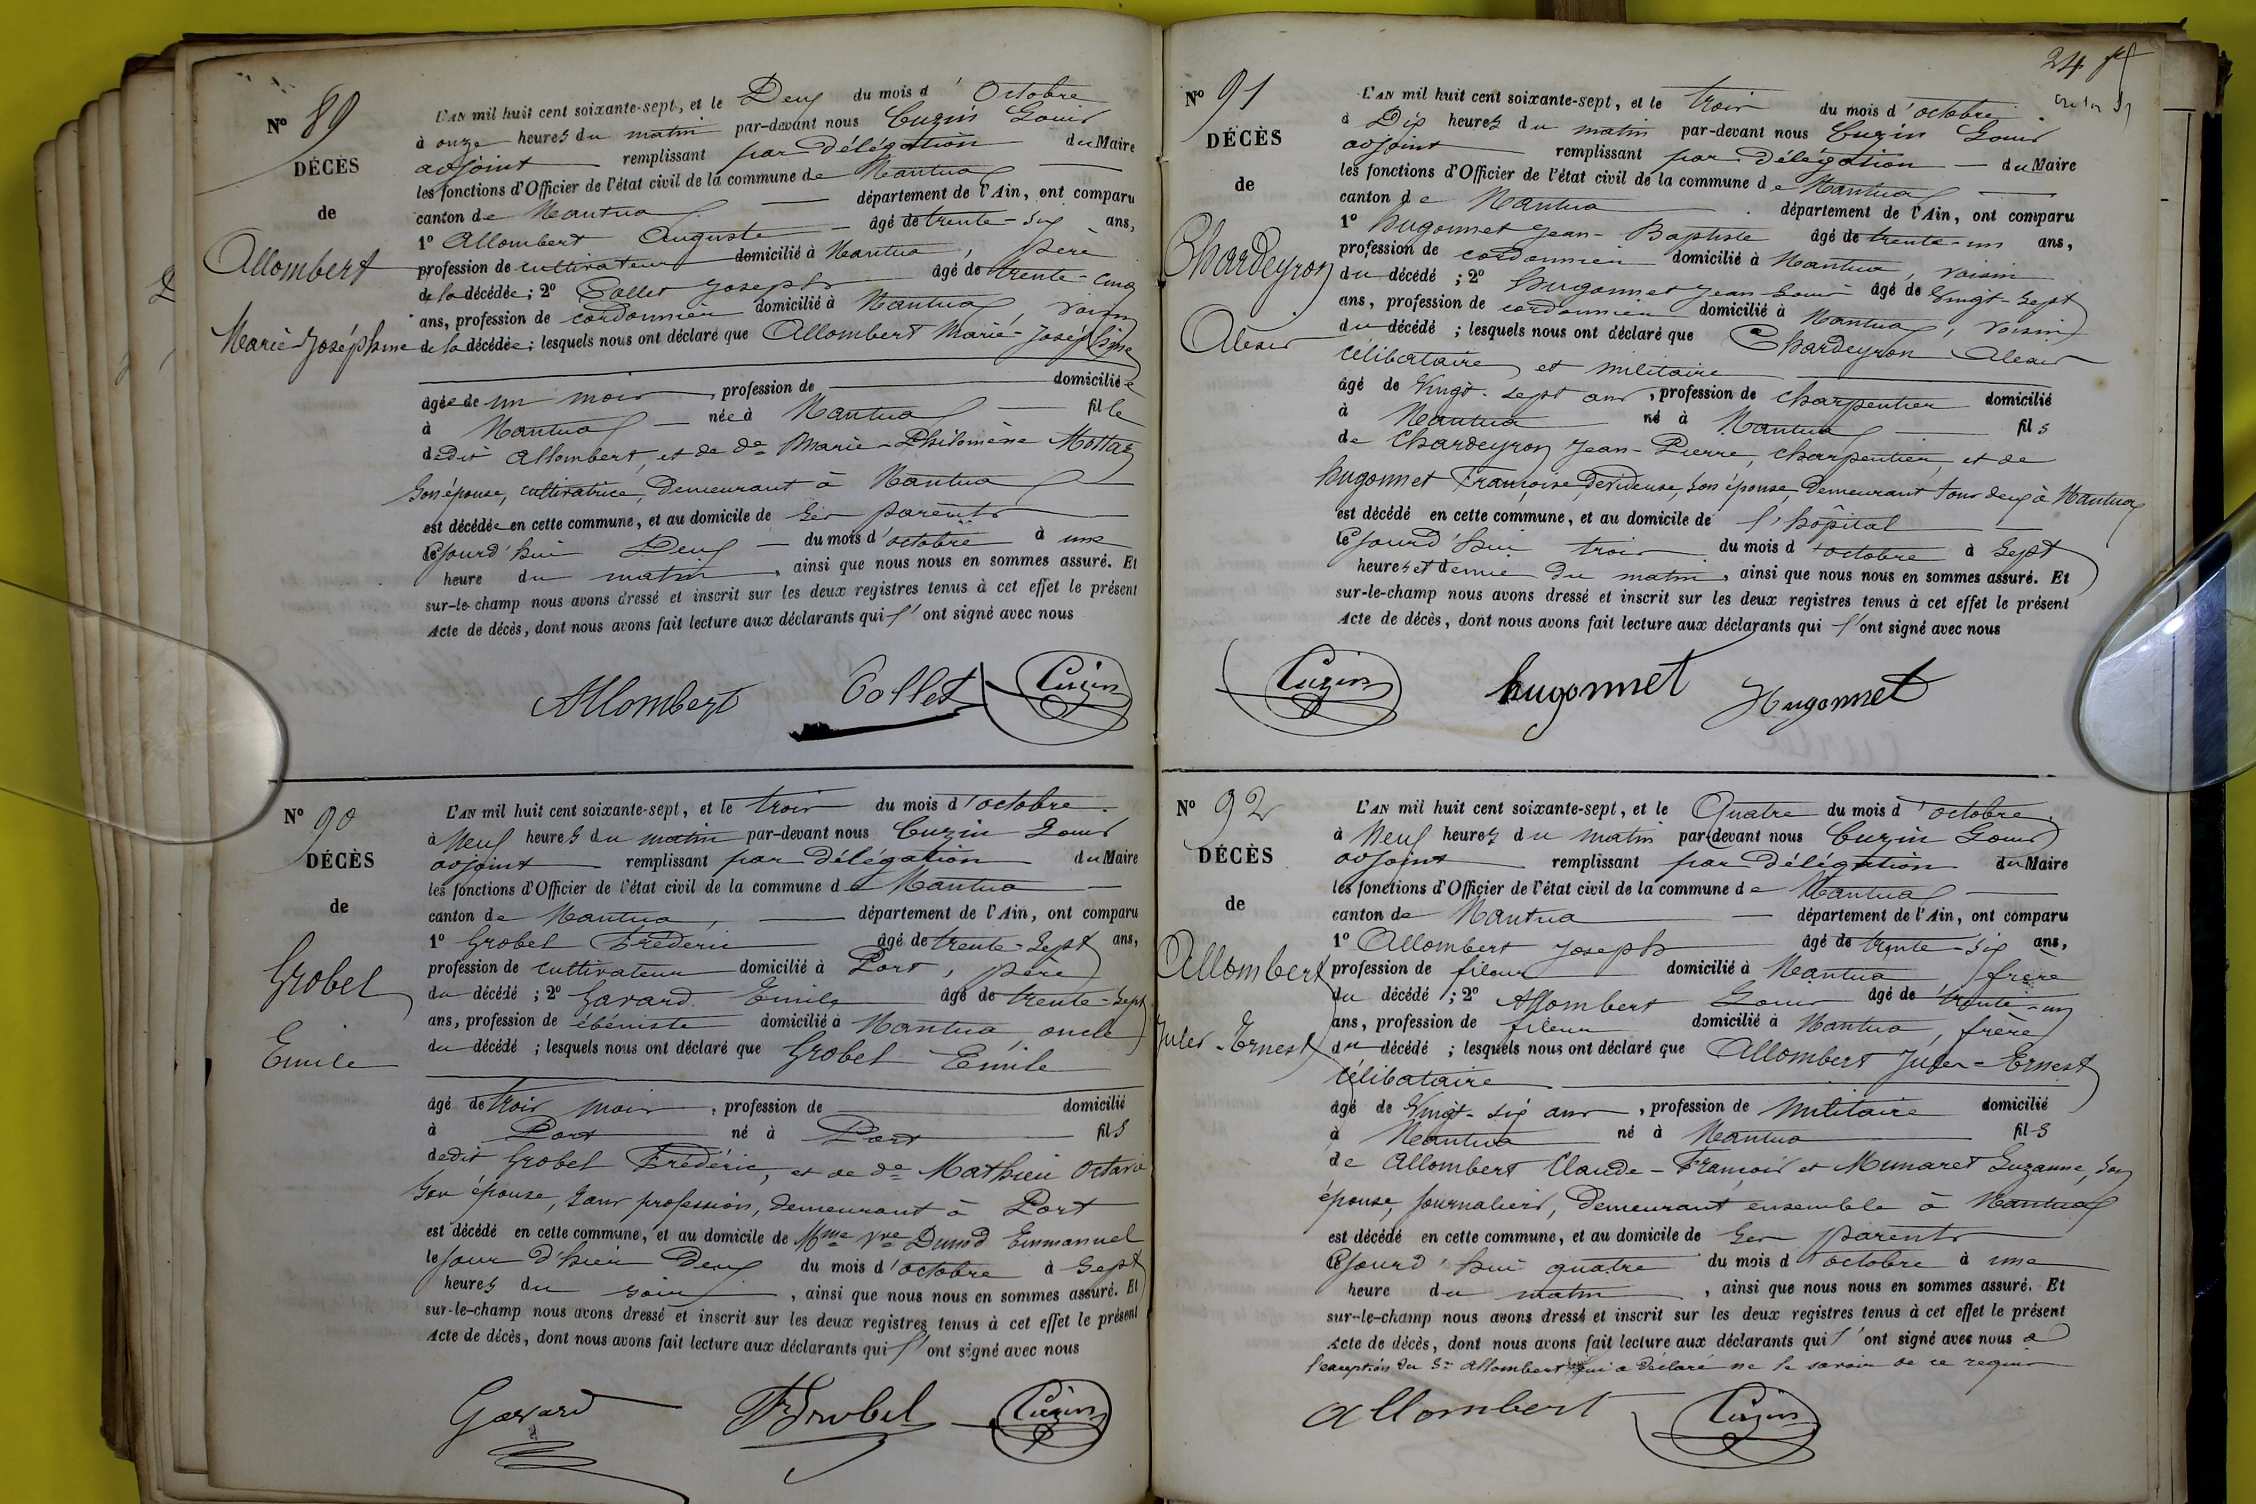 N° 89
DÉCÈS
de
Allombert
Marie-Joséphine
L'AN mil huit cent soixante-sept, et le Deux du mois d'Octobre
à onze heures du matin par-devant nous Cuzin Louis
adjoint remplissant par délégation du Maire
les fonctions d'Officier de l'état civil de la commune de Nantua
canton de Nantua département de l'Ain, ont comparu
1° Allombert Auguste âgé de trente-six ans,
profession de cultivateur domicilié à Nantua, père
de la décédée ; 2° Collet Joseph âgé de trente-cinq
ans, profession de cordonnier domicilié à Nantua, voisin
de la décédée ; lesquels nous ont déclaré que Allombert Marie-Joséphine
âgée de un mois, profession de domiciliée
à Nantua née à Nantua fille
de dit Allombert, et de de Marie-Philomène Mottaz
son épouse, cultivatrice, demeurant à Nantua
est décédée en cette commune, et au domicile de ses parents
le jourd'hui Deux du mois d'octobre à une
heure du matin, ainsi que nous nous en sommes assuré. Et
sur-le-champ nous avons dressé et inscrit sur les deux registres tenus à cet effet le présent
Acte de décès, dont nous avons fait lecture aux déclarants qui l'ont signé avec nous
Allombert Collet Cuzin
N° 90
DÉCÈS
de
Grobel
Emile
L'AN mil huit cent soixante-sept, et le trois du mois d'octobre
à Neuf heures du matin par-devant nous Cuzin Louis
adjoint remplissant par délégation du Maire
les fonctions d'Officier de l'état civil de la commune de Nantua
canton de Nantua, département de l'Ain, ont comparu
1° Grobel Frédéric âgé de trente-sept ans,
profession de cultivateur domicilié à Port, père
du décédé ; 2° Gavard Emile âgé de trente-sept
ans, profession de ébéniste domicilié à Nantua, oncle
du décédé ; lesquels nous ont déclaré que Grobel Emile
âgé de trois mois, profession de domicilié
à Port né à Port fils
de dit Grobel Frédéric, et de de Mathieu Octavie
son épouse, sans profession, demeurant à Port
est décédé en cette commune, et au domicile de Mme Vve Dunod Emmanuel
le jour d'hier Deux du mois d'octobre à sept
heures du soir, ainsi que nous nous en sommes assuré. Et
sur-le-champ nous avons dressé et inscrit sur les deux registres tenus à cet effet le présent
Acte de décès, dont nous avons fait lecture aux déclarants qui l'ont signé avec nous
Gavard F. Grobel Cuzin
24
N° 91
DÉCÈS
de
Chardeyron
Alexis
L'AN mil huit cent soixante-sept, et le trois du mois d'octobre
à Dix heures du matin par-devant nous Cuzin Louis
adjoint remplissant par délégation du Maire
les fonctions d'Officier de l'état civil de la commune de Nantua
canton de Nantua département de l'Ain, ont comparu
1° hugonnet Jean-Baptiste âgé de trente-un ans,
profession de cordonnier domicilié à Nantua, voisin
du décédé ; 2° hugonnet Jean Louis âgé de Vingt-sept
ans, profession de cordonnier domicilié à Nantua, voisin
du décédé ; lesquels nous ont déclaré que Chardeyron Alexis
célibataire et militaire
âgé de Vingt-sept ans, profession de charpentier domicilié
à Nantua né à Nantua fils
de Chardeyron Jean-Pierre, charpentier, et de
hugonnet Françoise, dévideuse, son épouse, demeurant tous deux à Nantua
est décédé en cette commune, et au domicile de l'hôpital
le jourd'hui trois du mois d'octobre à sept
heures et demie du matin, ainsi que nous nous en sommes assuré. Et
sur-le-champ nous avons dressé et inscrit sur les deux registres tenus à cet effet le présent
Acte de décès, dont nous avons fait lecture aux déclarants qui l'ont signé avec nous
Cuzin hugonnet Hugonnet
N° 92
DÉCÈS
de
Allombert
Jules-Ernest
L'AN mil huit cent soixante-sept, et le Quatre du mois d'octobre
à Neuf heures du matin par-devant nous Cuzin Louis
adjoint remplissant par délégation du Maire
les fonctions d'Officier de l'état civil de la commune de Nantua
canton de Nantua département de l'Ain, ont comparu
1° Allombert Joseph âgé de trente-six ans,
profession de fileur domicilié à Nantua frère
du décédé ; 2° Allombert Louis âgé de trente-un
ans, profession de fileur domicilié à Nantua, frère
du décédé ; lesquels nous ont déclaré que Allombert Jules-Ernest
célibataire
âgé de Vingt-six ans, profession de militaire domicilié
à Nantua né à Nantua fils
de Allombert Claude-François et Munaret Suzanne, son
épouse, journaliers, demeurant ensemble à Nantua
est décédé en cette commune, et au domicile de ses parents
le jourd'hui quatre du mois d'octobre à une
heure du matin, ainsi que nous nous en sommes assuré. Et
sur-le-champ nous avons dressé et inscrit sur les deux registres tenus à cet effet le présent
Acte de décès, dont nous avons fait lecture aux déclarants qui l'ont signé avec nous à
l'exception du Sr Allombert qui a déclaré ne le savoir de ce requis
allombert Cuzin